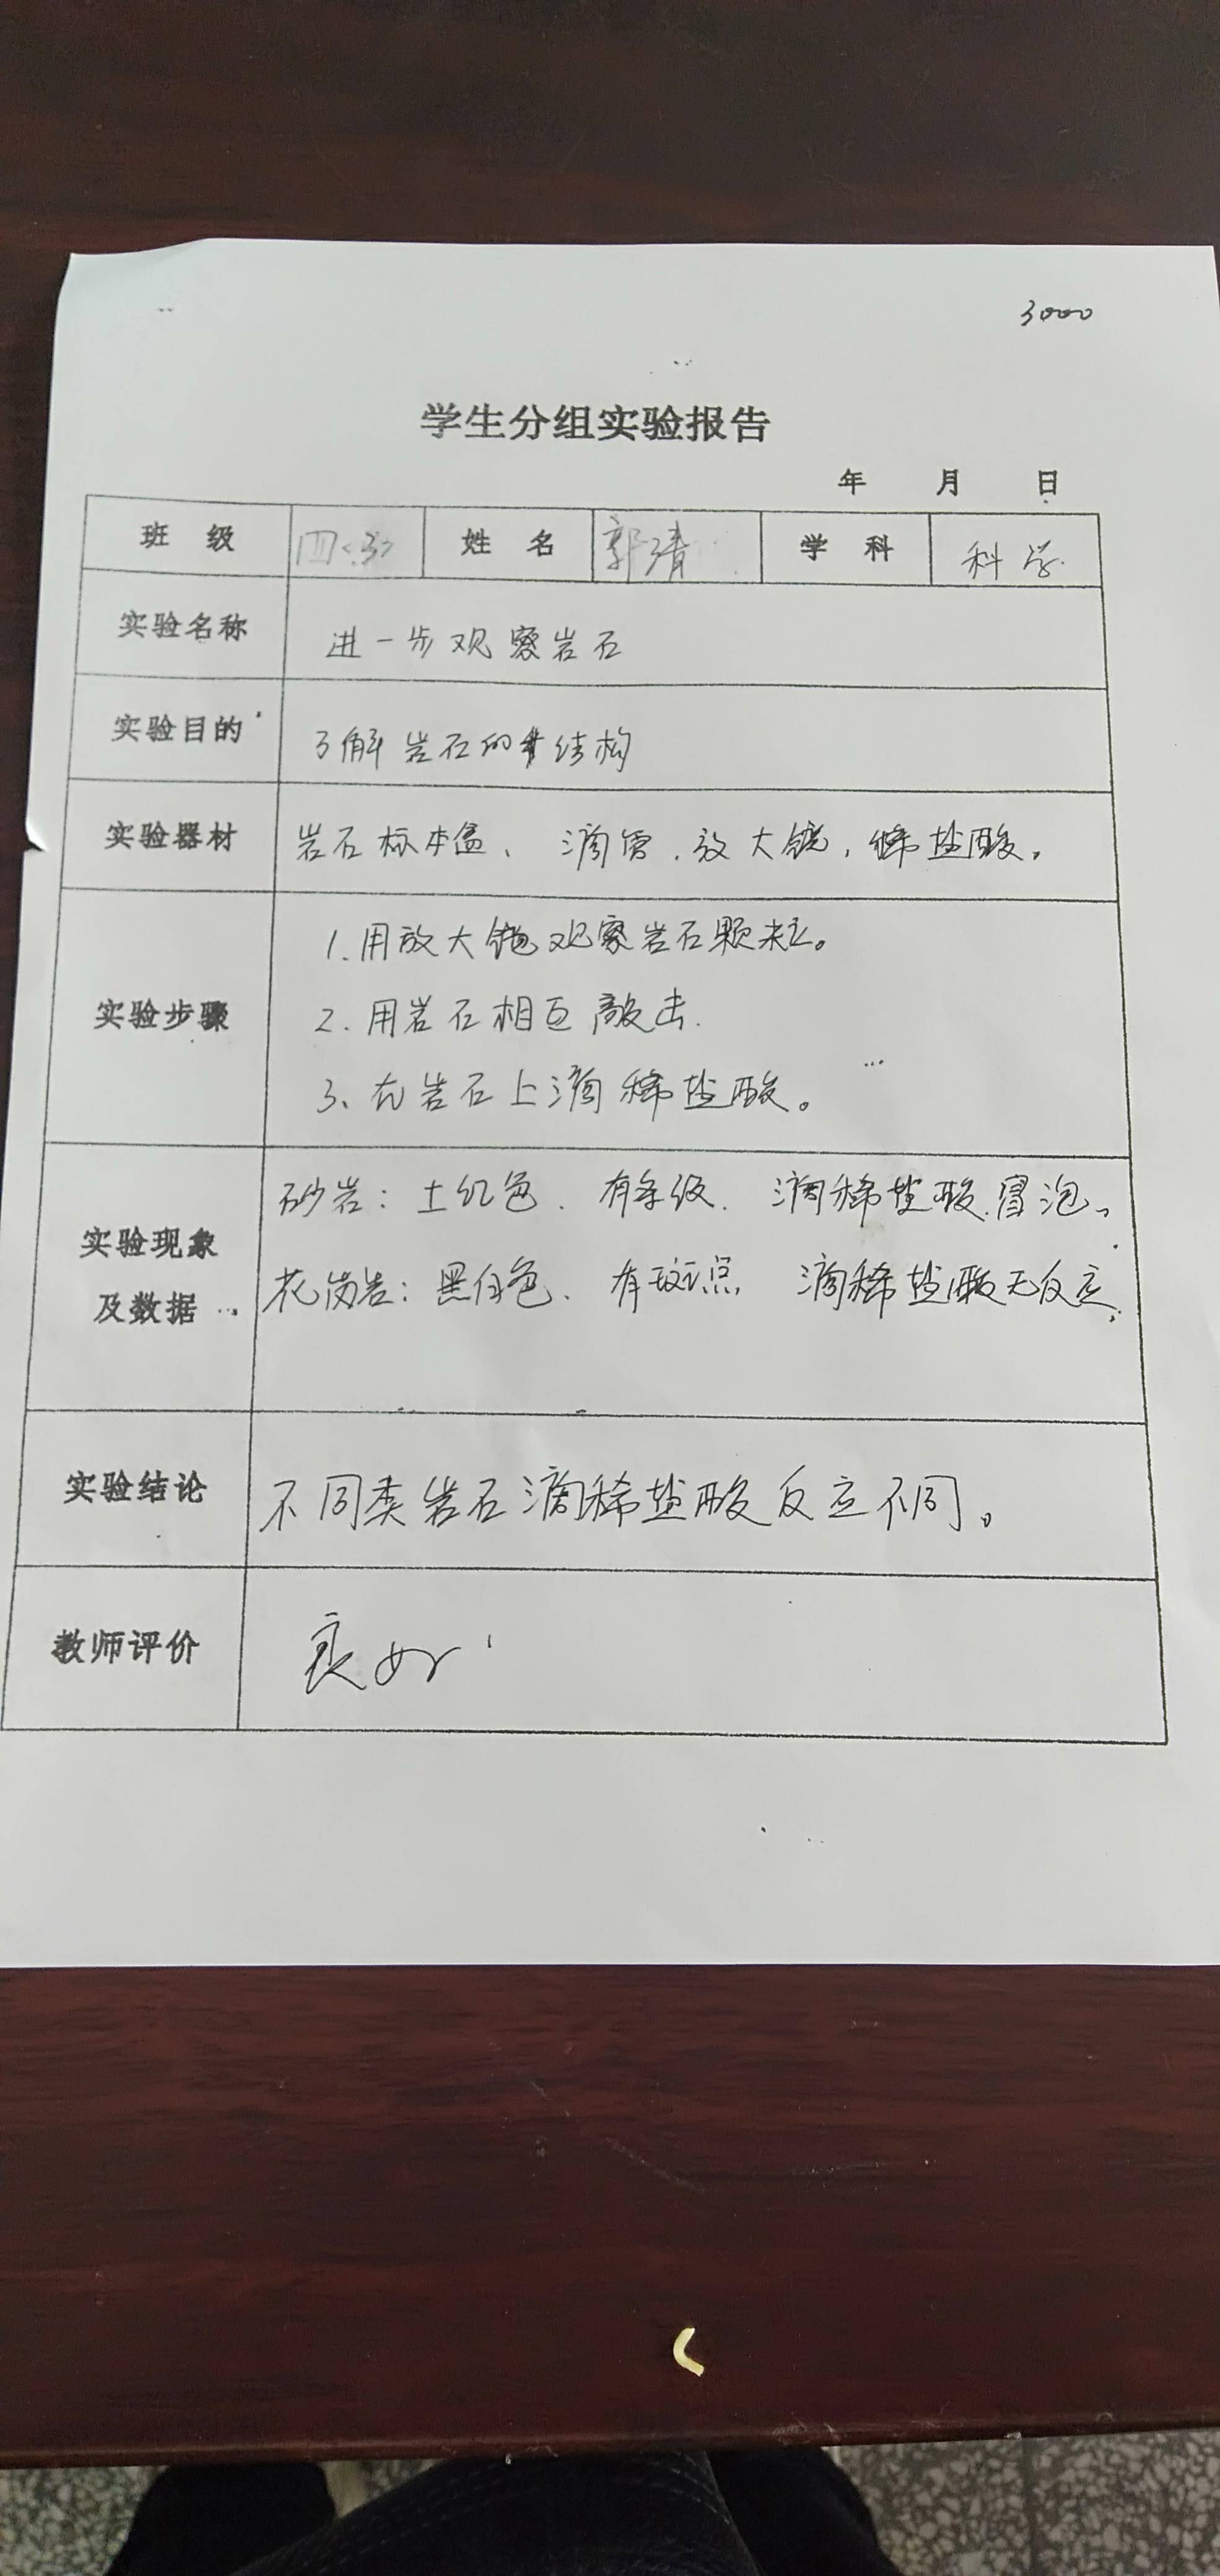 3000
学生分组实验报告
年 月 日
班 级 四<3> 姓 名 郭清 学 科 科学
实验名称 进一步观察岩石
实验目的 了解岩石的结构
实验器材 岩石标本盒、滴管、放大镜,稀盐酸。
实验步骤
1.用放大镜观察岩石颗粒。
2.用岩石相互敲击.
3、在岩石上滴稀盐酸。
实验现象
及数据
砂岩:土红色、有条纹.滴稀盐酸冒泡。
花岗岩:黑白色、有斑点 滴稀盐酸无反应,
实验结论 不同类岩石滴稀盐酸反应不同。
教师评价 良好